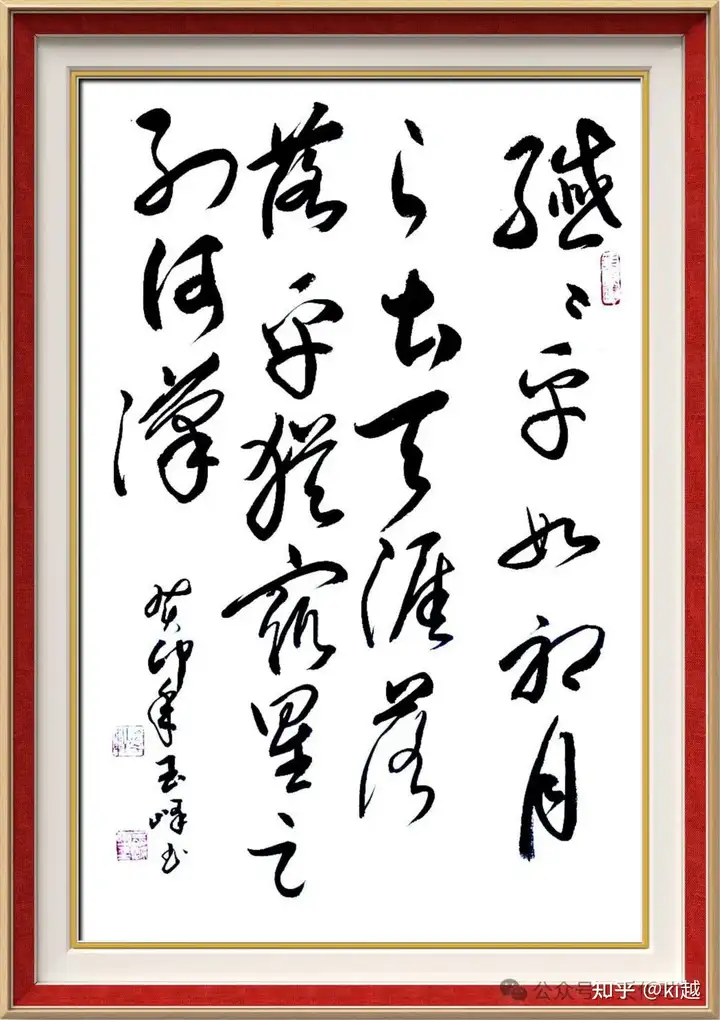 纖〻乎如初月
之出天涯落
落乎猶眾星之
列河漢
癸卯年玉峰书
公众号
知乎 @ki越